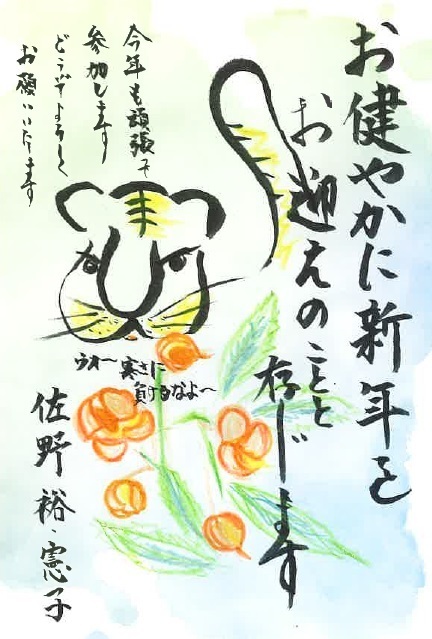 お健やかに新年を
お迎えのことと
存じます
今年も頑張って
参加します
どうぞよろしく
お願いいたします
ウオー寒さに
負けるなよ〜
佐野裕・憲子